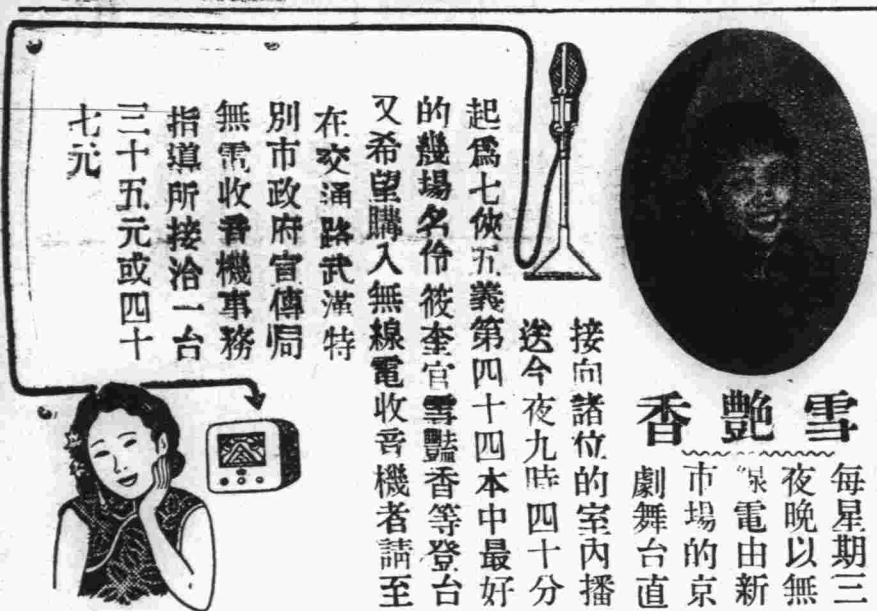 雪艷香
每星期三
夜晚以無
線電由新
市場的京
劇舞台直
接向諸位的室內播
送今夜九時四十分
起爲七俠五義第四十四本中最好
的幾場名伶筱奎官雪豔香等登台
又希望購入無線電收音機者請至
在交通路武漢特
別市政府宣傳局
無電收音機事務
指導所接洽一台
三十五元或四十
七元